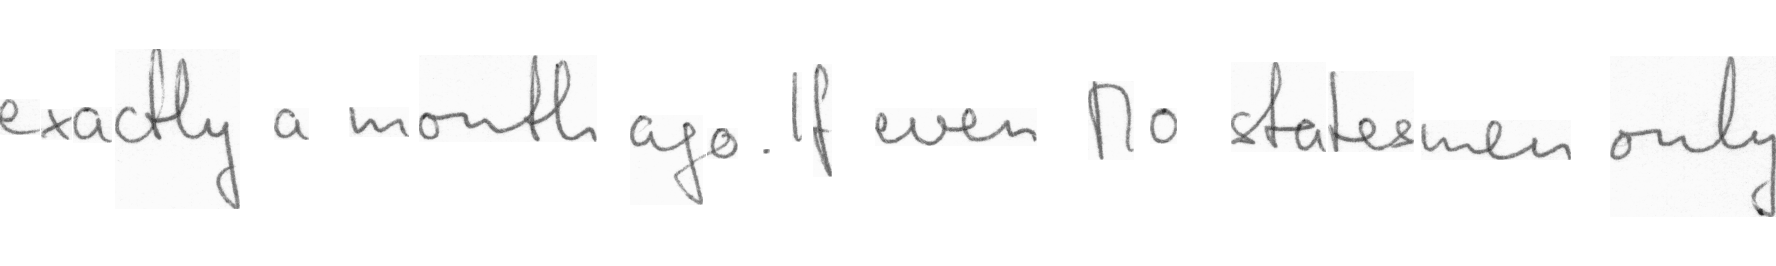 exactly a month ago. If even No statesmen only